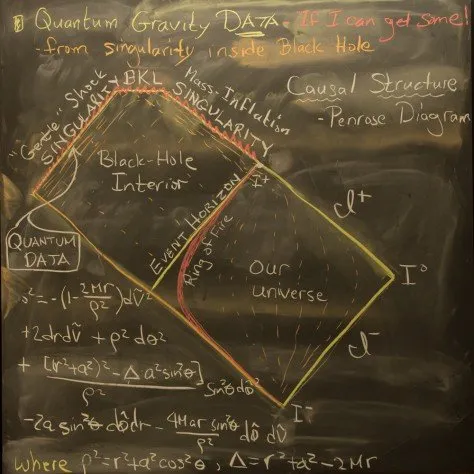 Quantum Gravity DATA - If I can get some!
- from singularity inside Black Hole
Causal Structure
- Penrose Diagram
"Gentle" Shock
SINGULARITY
BKL
Mass-Inflation
SINGULARITY
Black-Hole
Interior
I⁺
EVENT HORIZON
Ring of Fire
𝓘⁺
QUANTUM
DATA
Our
universe
I⁰
𝓘⁻
I⁻
s² = -(1-2Mr/ρ²)dṽ²
+2drdṽ + ρ²dθ²
+ [(r²+a²)²-Δa²sin²θ]/ρ² sin²θdφ̃²
-2a sin²θdφ̃dr - 4Mar sin²θ/ρ² dφ̃ dṽ
where ρ²=r²+a²cos²θ, Δ=r²+a²-2Mr